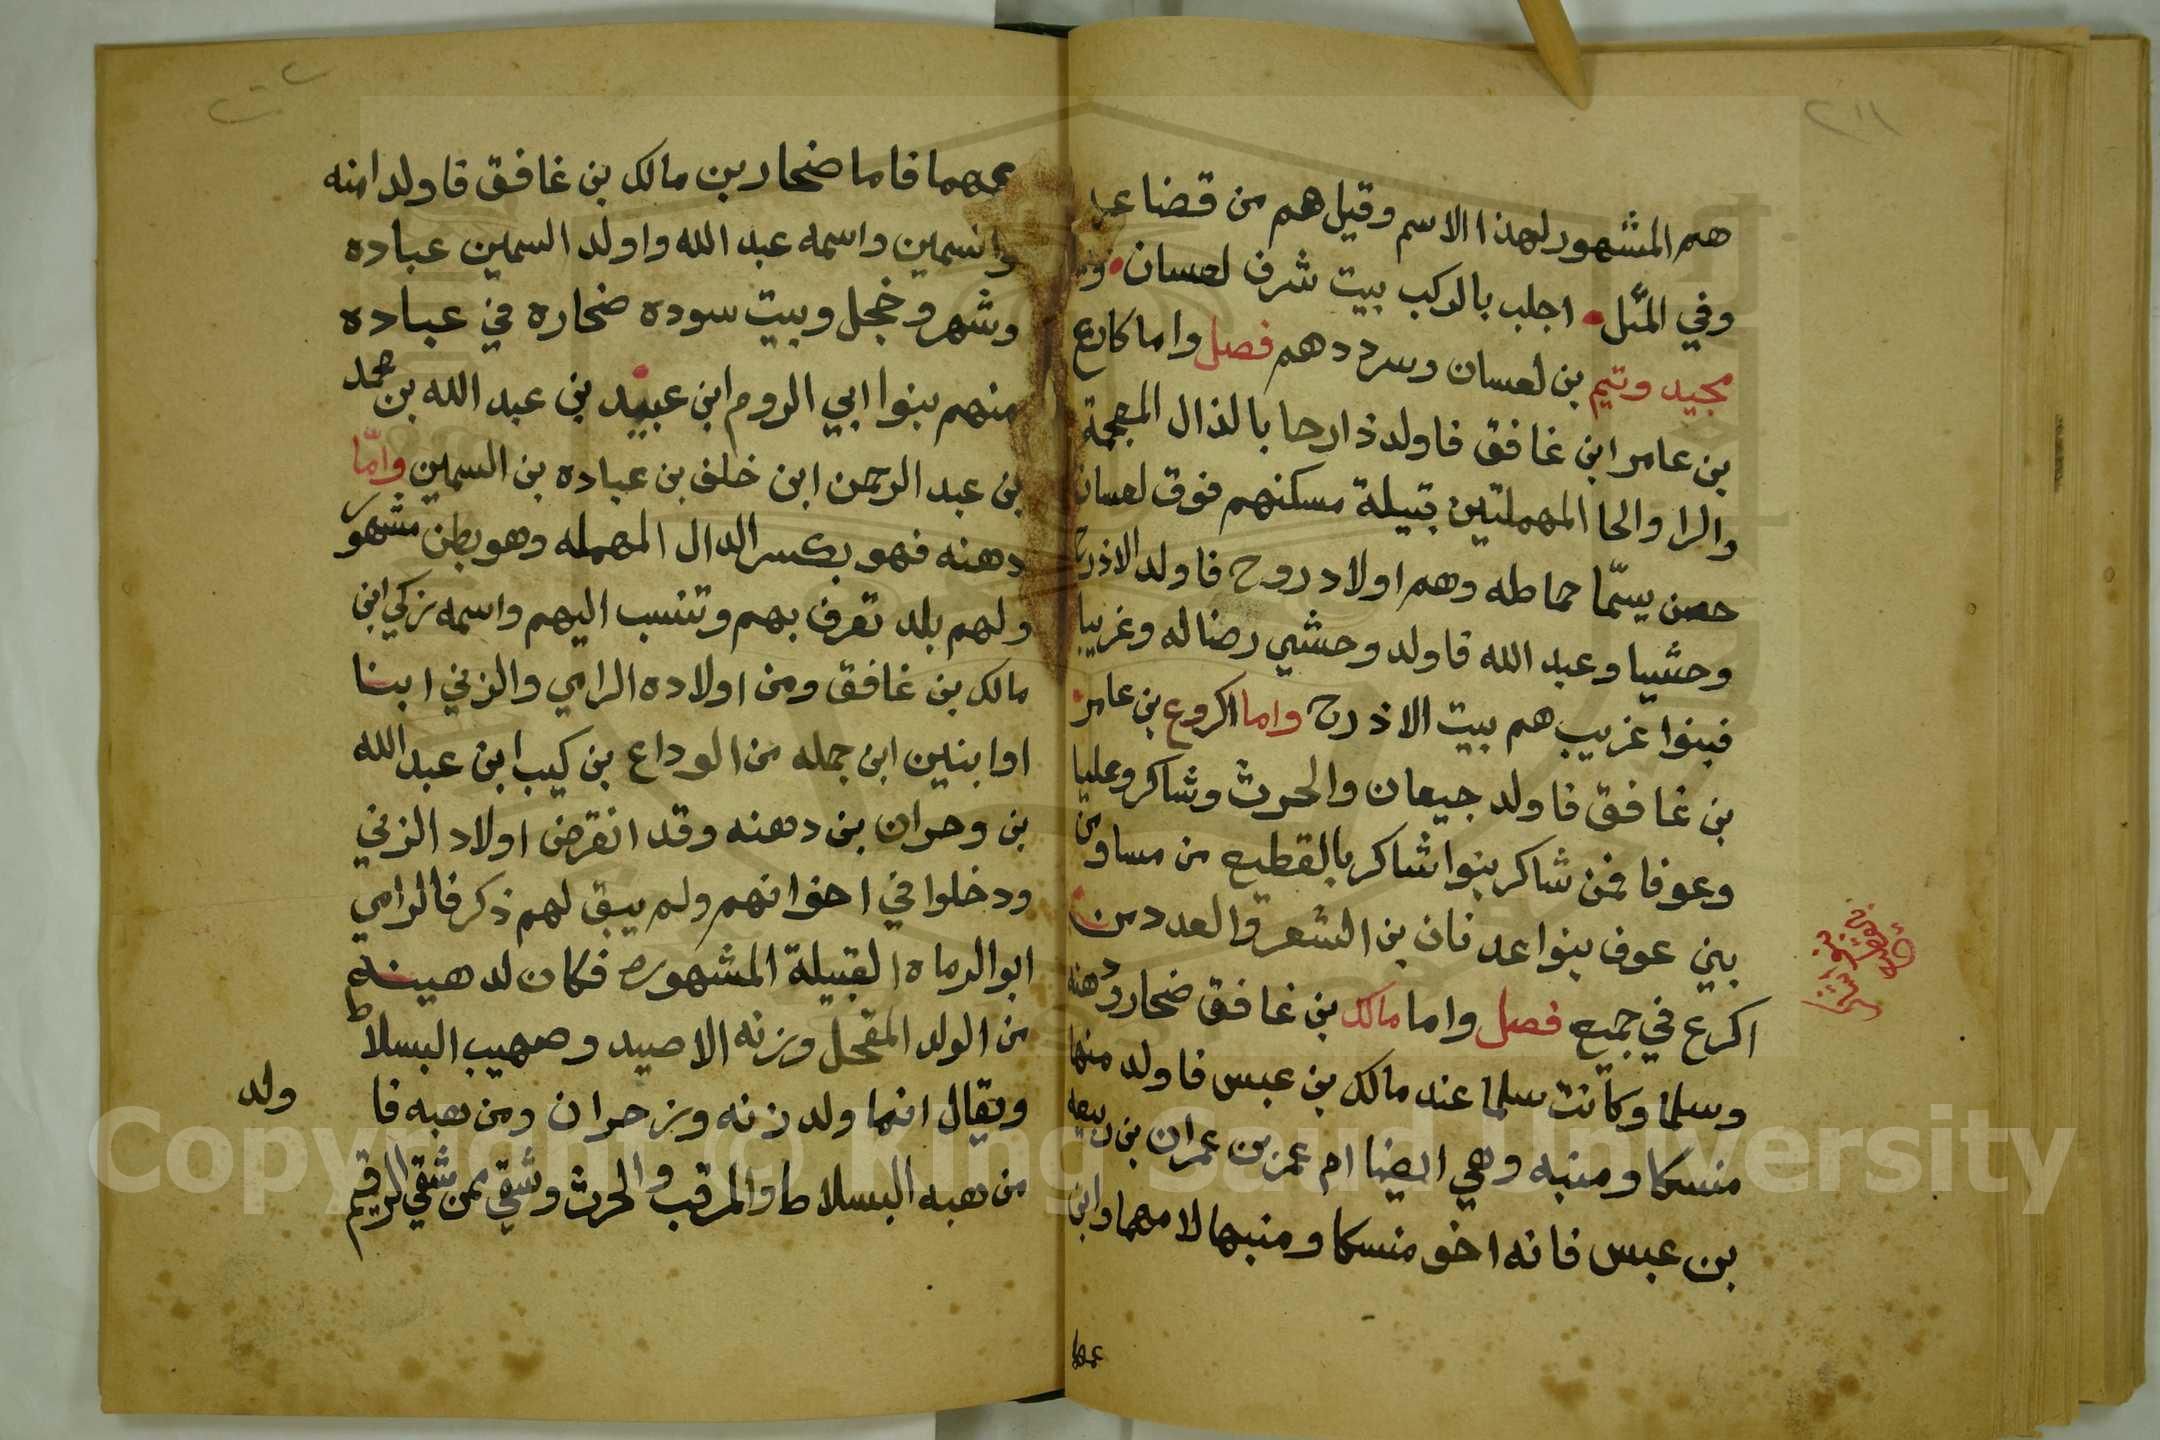 هم المشهور لهذا الاسم وقيل هم من قضاعه
وفي المثل اجلب بالركب بيت شرف لعسان
مجيد وتيم بن لعسان وسردد هم فصل واما كارع
بن عامر ابن غافق فاولد ذارحا بالذال المعجمة
والرا والحا المهملتين قبيلة مسكنهم فوق لعسان
حصن يسمّا حماطه وهم اولاد روح فاولد الاذرح
وحشيا وعبد الله فاولد وحشي رضاله وغريبا
فبنوا غريب هم بيت الاذرح واما اكروع بن عامر
بن غافق فاولد جيعان والحرث وشاكر وعليا
وعوفا فمن شاكر بنوا شاكر بالقطيع من مساو من
بني عوف بنوا عدنان بن الشعر والعددين
اكرع في جميع فصل واما مالك بن غافق ضحار ودهنه
وسلما وكانت سلما عند مالك بن عبس فاولد منها
منسكا ومنبه وهي ايضا ام عمر بن عمران بن ربيعه
بن عبس فانه اخو منسكا ومنبها لامهما وابن
عمهما
عمهما فاما ضحار بن مالك بن غافق فاولد امنه
والسمين واسمه عبد الله واولد السمين عباده
وشهر وخجل وبيت سوده ضحاره في عباده
منهم بنوا ابي الروم ابن عبيد بن عبد الله بن محمد
بن عبد الرحمن ابن خلف بن عباده بن السمين وامّا
دهنه فهو بكسر الدال المهمله وهو بطن مشهور
ولهم بلد تعرف بهم وتنسب اليهم واسمه زكي ابن
مالك بن غافق ومن اولاده الرامي والزني ابنا
اوابنين ابن جمله من الوداع بن كيب ابن عبد الله
بن وحران بن دهنه وقد انقرض اولاد الزني
ودخلوا في اخوانهم ولم يبق لهم ذكر فالرامي
ابو الرماه القبيلة المشهوره فكان لدهينه
من الولد المقحل وزنه الاصيد وصهيب البسلاط
ويقال انما ولد زنه وبز حران ومن هبه فا
ولد
من هبه البسلاط والمرقب والحرث وشقي فمن شقي الرقيم